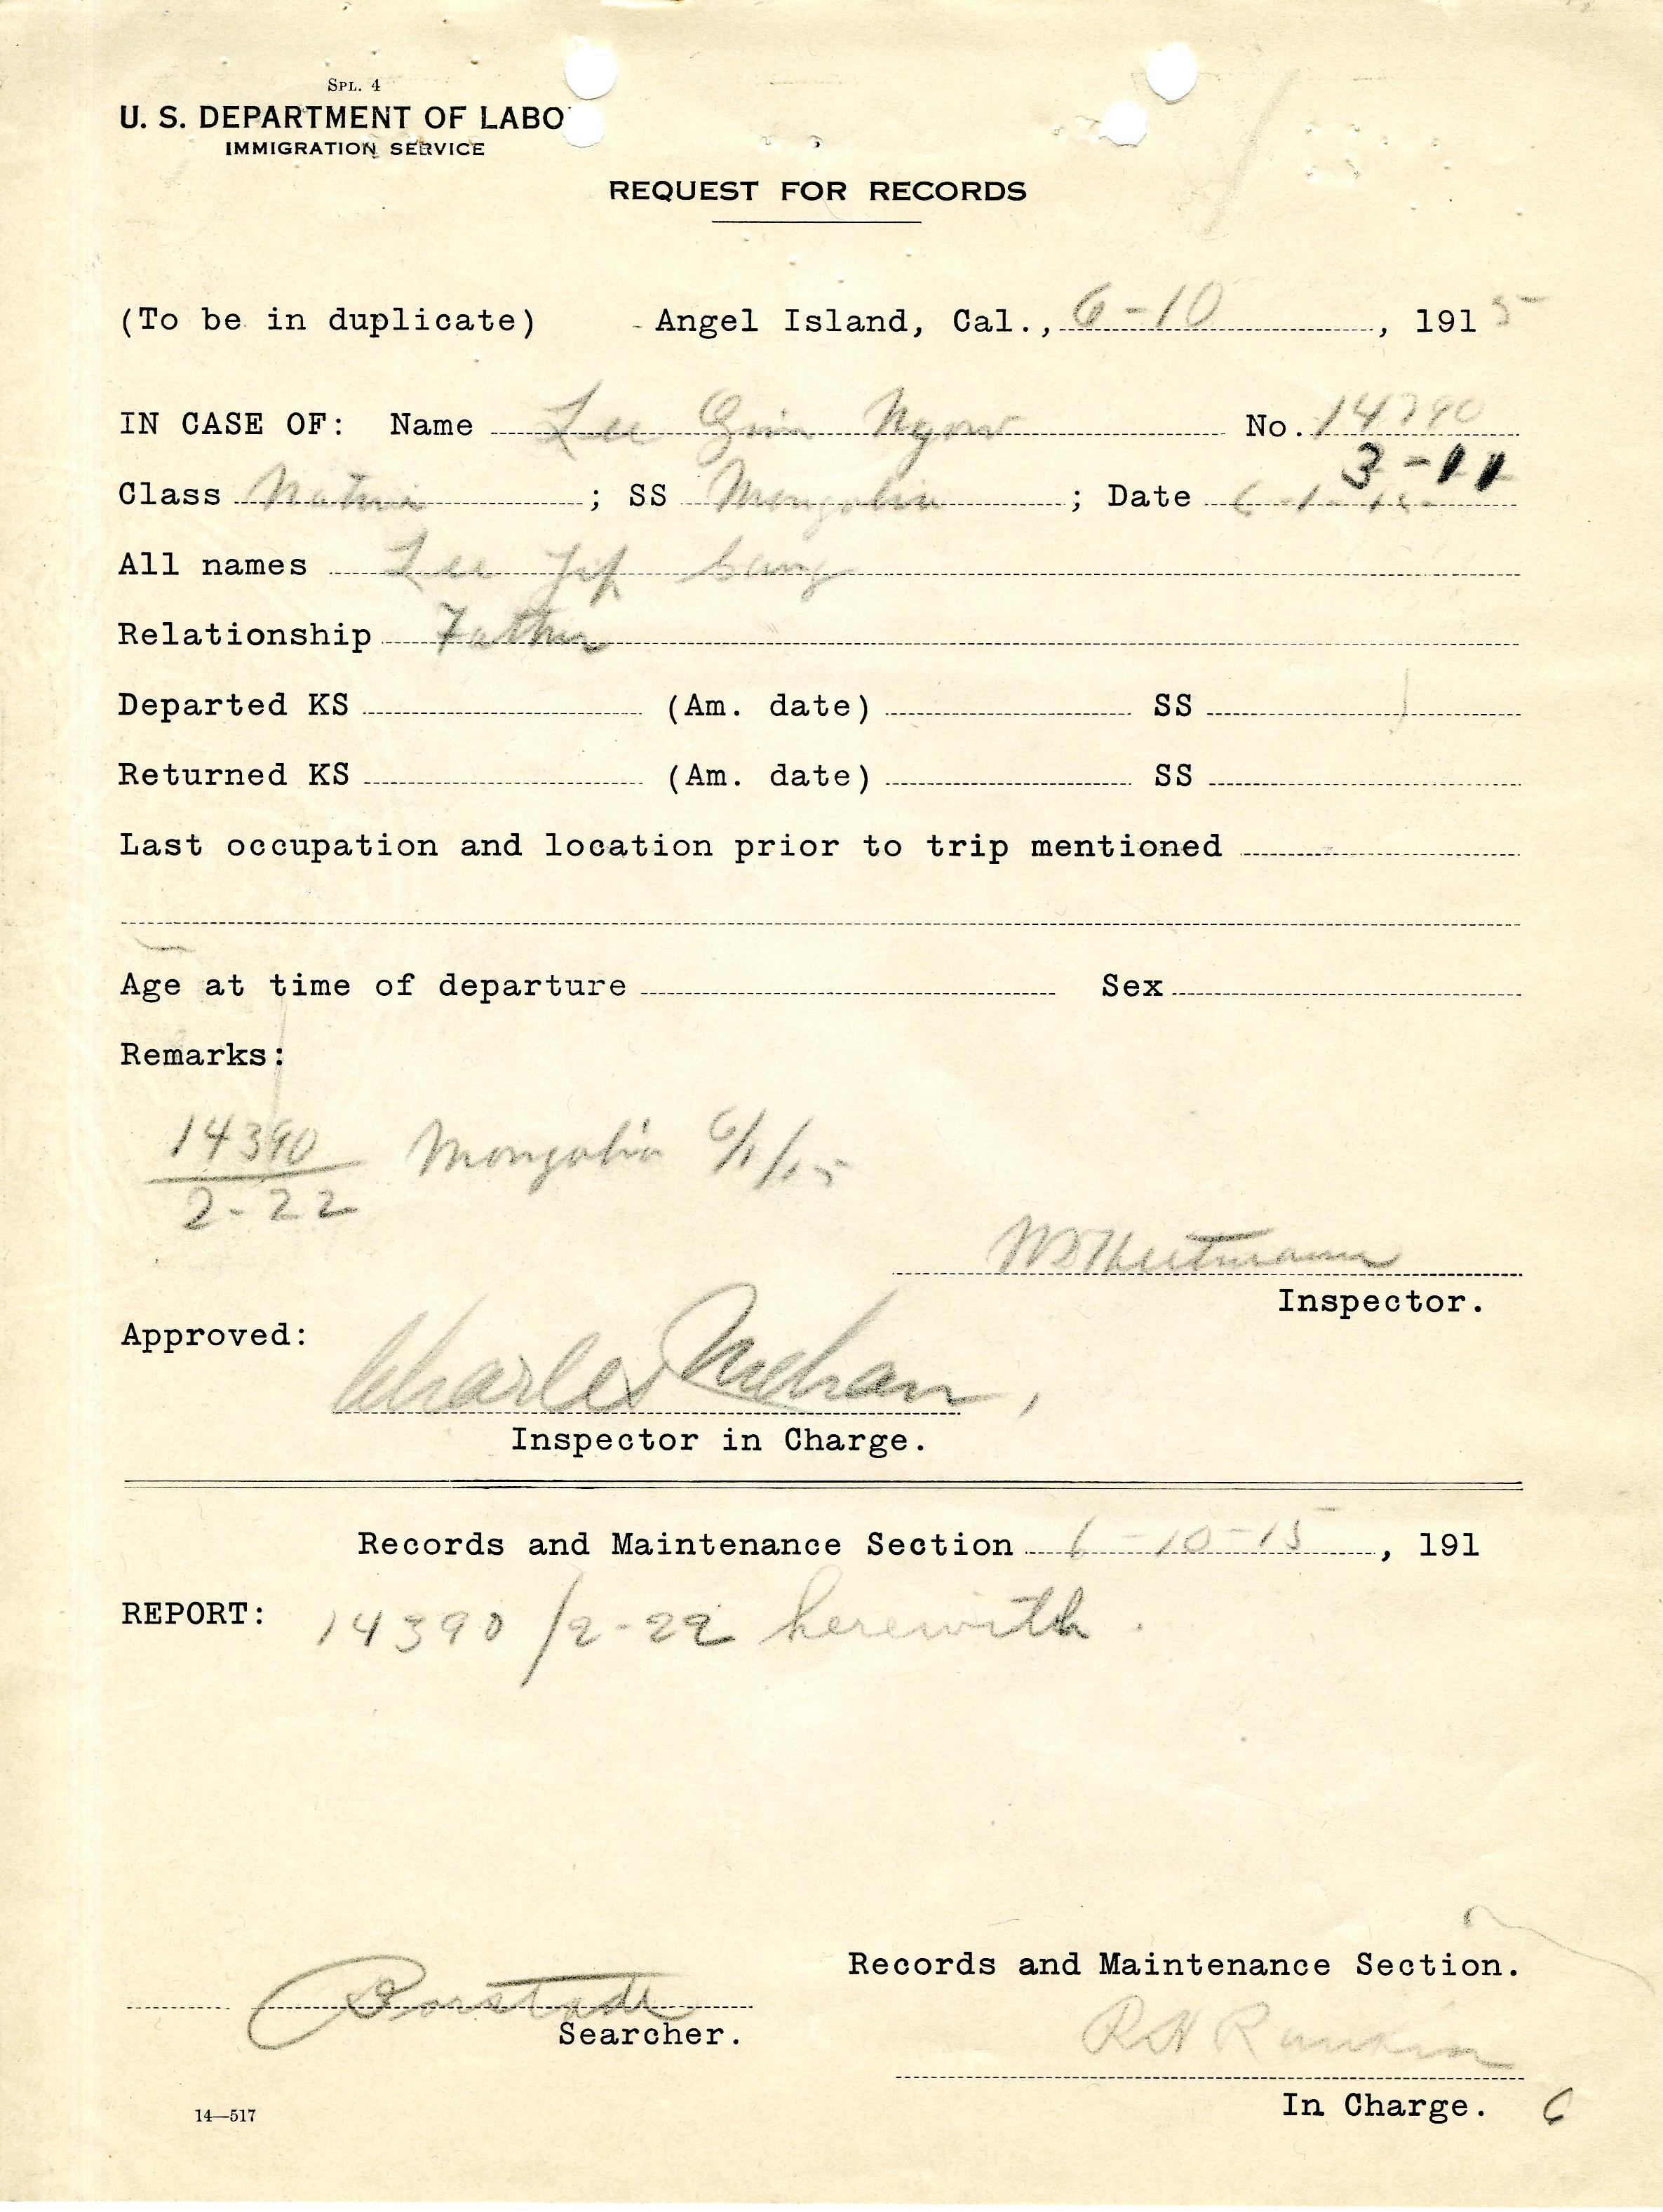 SPL. 4
U. S. DEPARTMENT OF LABO
IMMIGRATION SERVICE
REQUEST FOR RECORDS
(To be in duplicate) Angel Island, Cal., 6-10, 1915
IN CASE OF: Name Lee Gim Ngow No. 14390
3-11
Class Native; SS Mongolia; Date 6-1-15
All names Lee Yip Sang
Relationship Father
Departed KS (Am. date) SS
Returned KS (Am. date) SS
Last occupation and location prior to trip mentioned
Age at time of departure Sex
Remarks:
14390 Mongolia 6/1/15
2-22
Inspector.
Approved: Charles Mehan,
Inspector in Charge.
Records and Maintenance Section 6-10-15, 191
REPORT: 14390/2-22 herewith.
Records and Maintenance Section.
Searcher.
R H Rankin
In Charge. 6
14—517